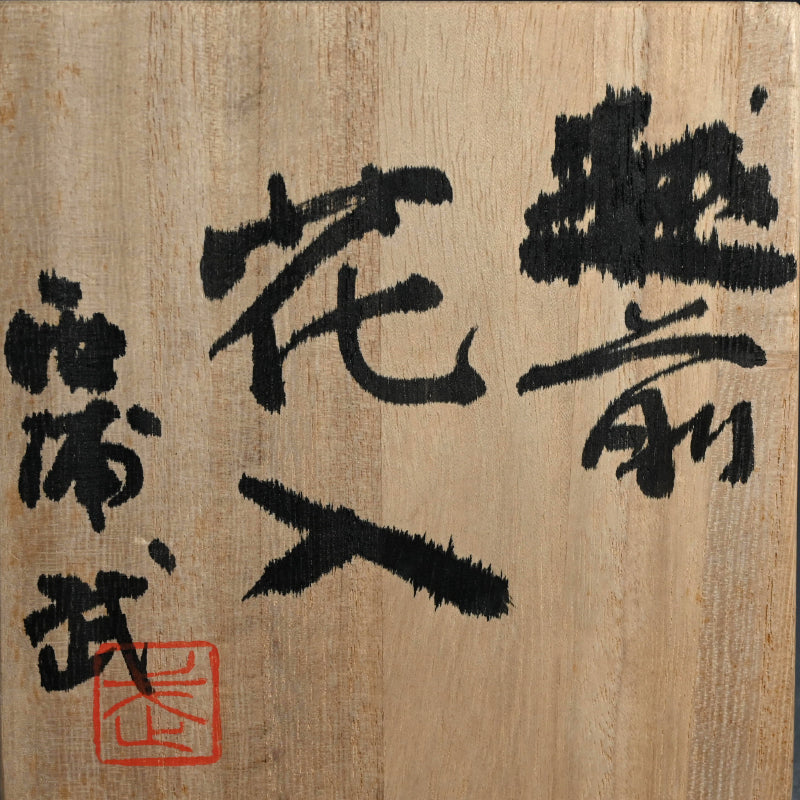 越前
花入
西浦武